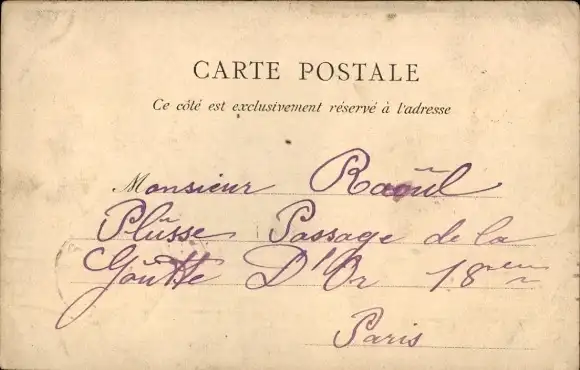 CARTE POSTALE
Ce côté est exclusivement réservé à l'adresse
Monsieur Raoul
Plüsse Passage de la
Goutte D'Or 18em
Paris